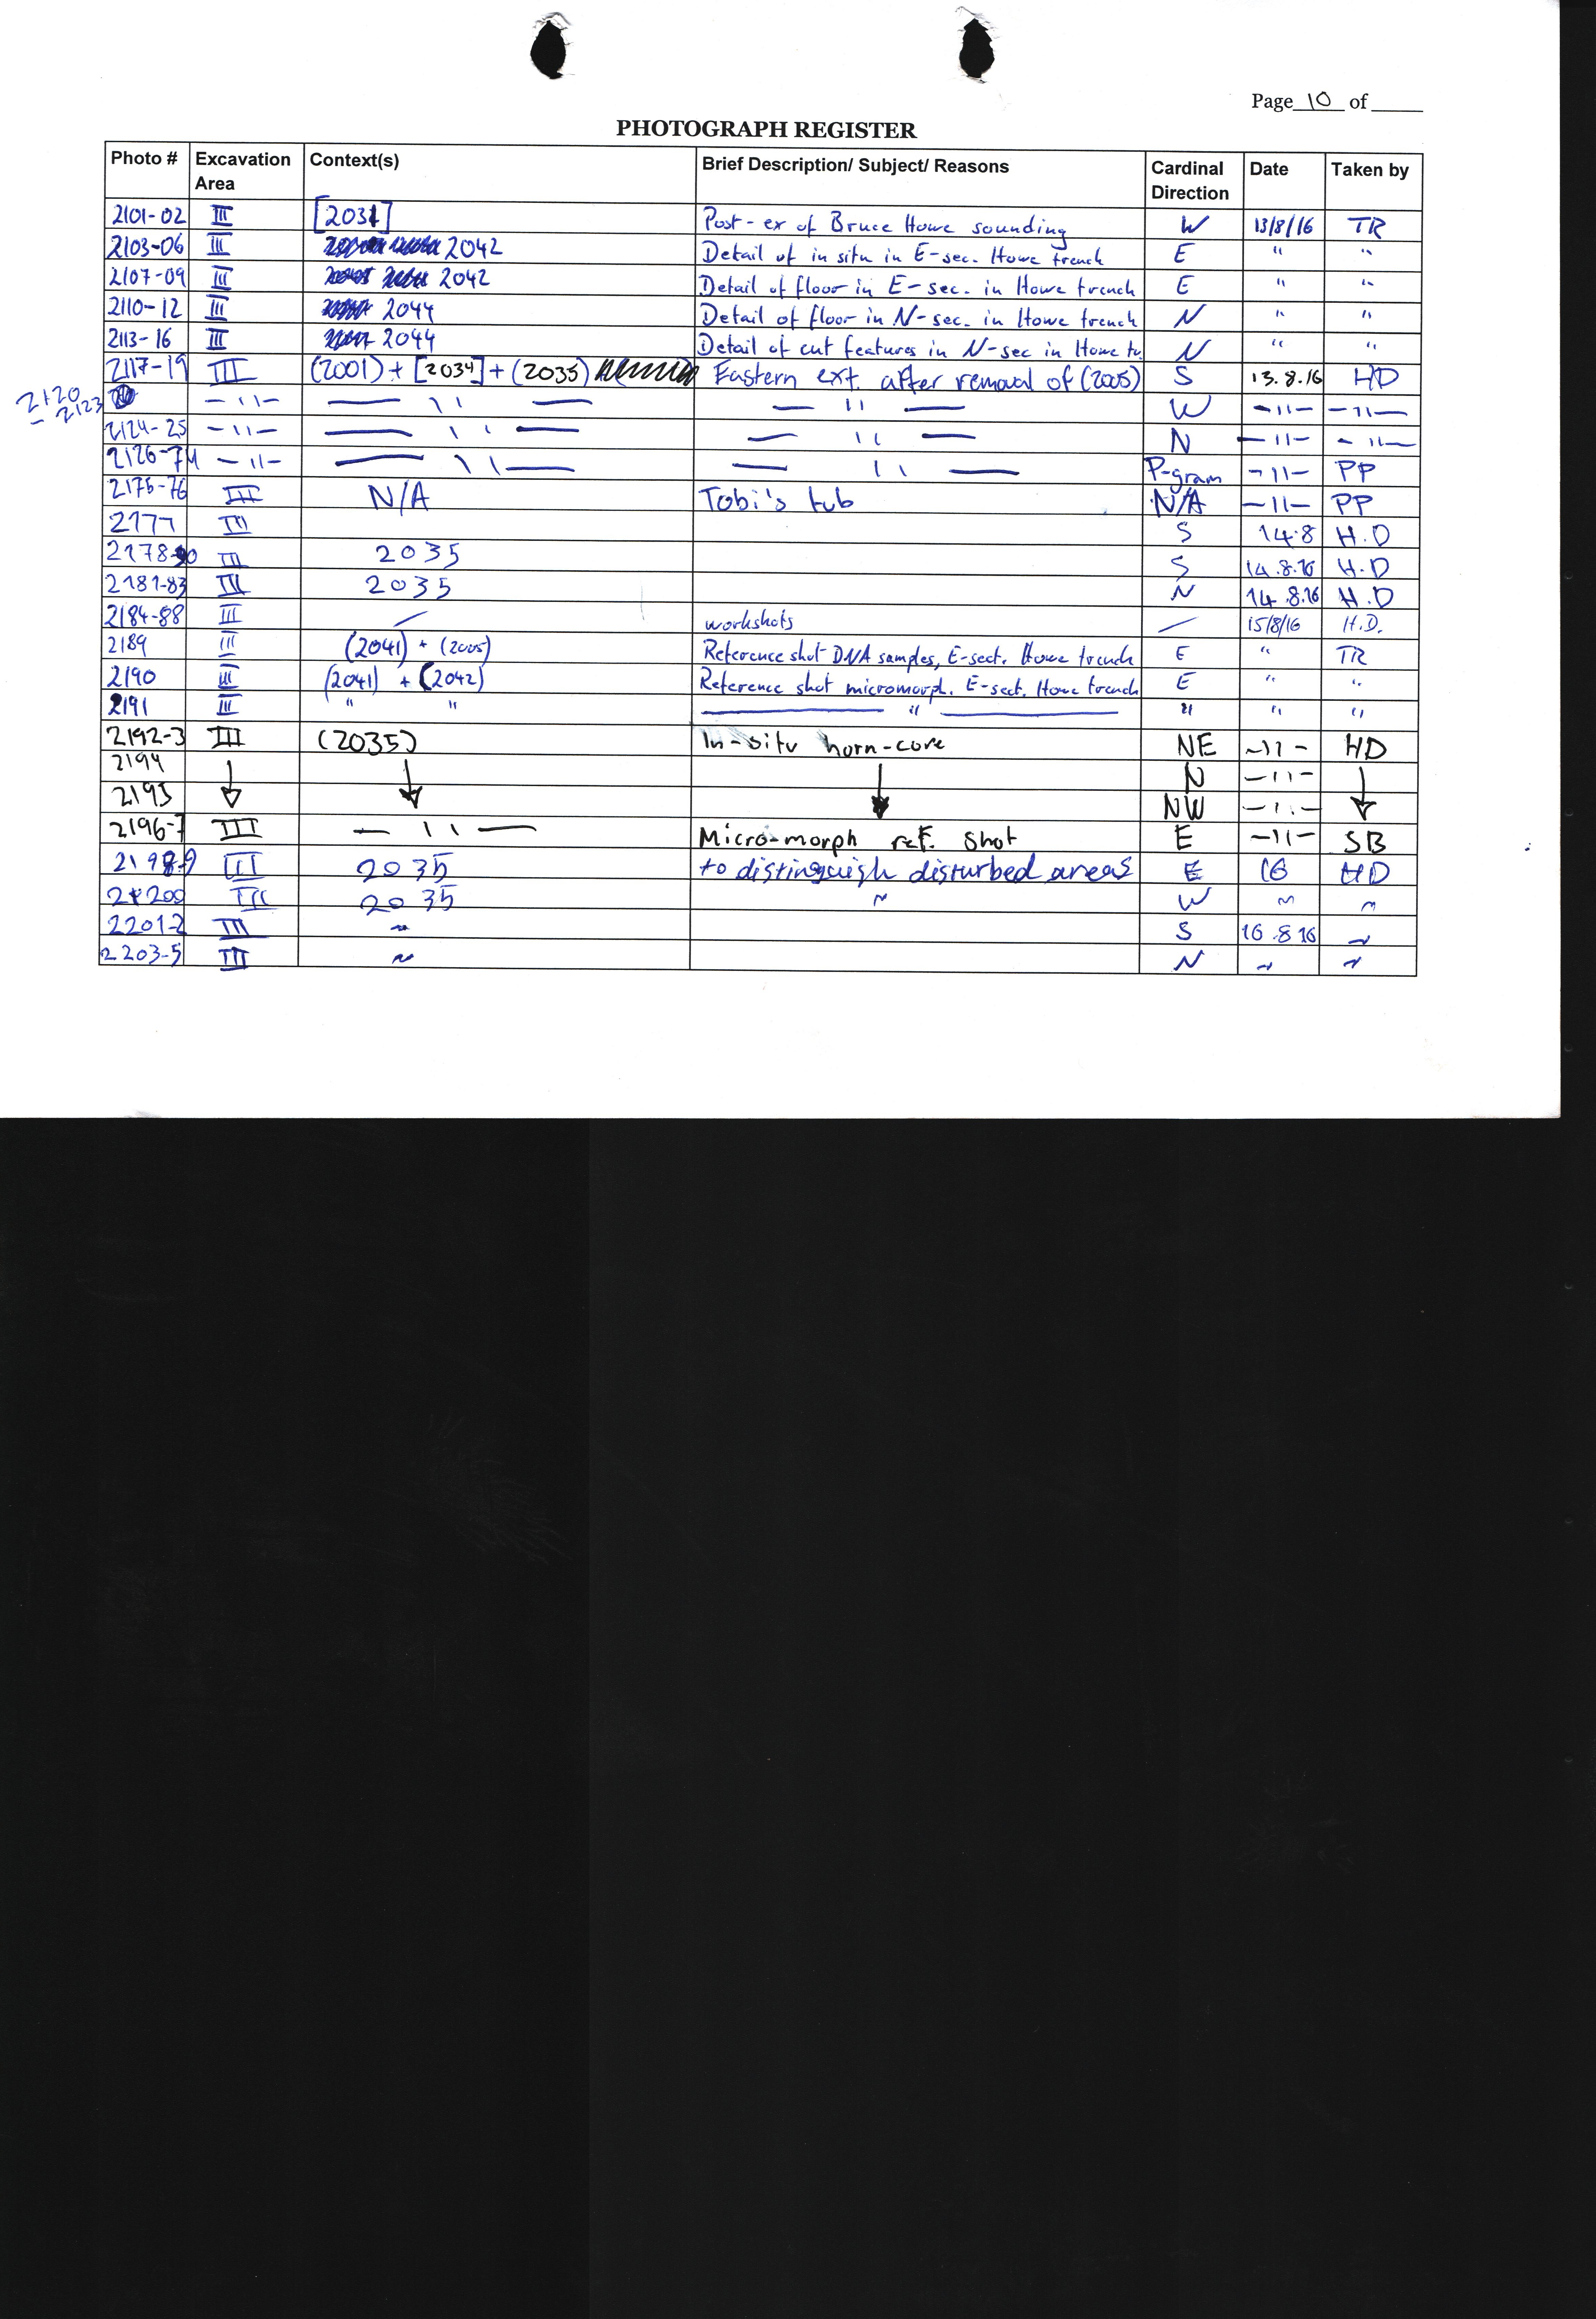 Page 10 of
PHOTOGRAPH REGISTER
Photo # Excavation Area Context(s) Brief Description/ Subject/ Reasons Cardinal Direction Date Taken by
2101-02 III [2031] Post-ex of Bruce Howe sounding W 13/8/16 TR
2103-06 III 2042 Detail of in situ in E-sec. Howe trench E " "
2107-09 III 2042 Detail of floor in E-sec. in Howe trench E " "
2110-12 III 2044 Detail of floor in N-sec. in Howe trench N " "
2113-16 III 2044 Detail of cut features in N-sec in Howe tr. N " "
2117-19 III (2001) + [2034] + (2035) Eastern ext. after removal of (2005) S 13.8.16 HD
2120-2123 -11- - 11 - - 11 - W -11- -11-
2124-25 -11- - 11 - - 11 - N -11- -11-
2126-74 -11- - 11 - - 11 - P-gram -11- PP
2175-76 III N/A Tobi's tub N/A -11- PP
2177 III S 14.8 H.D
2178-80 III 2035 S 14.8.16 H.D
2181-83 III 2035 N 14.8.16 H.D
2184-88 III / workshots / 15/8/16 H.D.
2189 III (2041) + (2005) Reference shot DNA samples, E-sect. Howe trench E " TR
2190 III (2041) + (2042) Reference shot micromorph. E-sect. Howe trench E " "
2191 III " " - " - " " "
2192-3 III (2035) In-situ horn-core NE -11- HD
2194 ↓ ↓ ↓ N -11- ↓
2195 NW -11-
2196-7 III - 11 - Micro-morph ref. shot E -11- SB
2198-9 III 2035 to distinguish disturbed areas E 16 HD
2200 III 2035 ~ W ~ ~
2201-2 III ~ S 16.8.16 ~
2203-5 III ~ N ~ ~